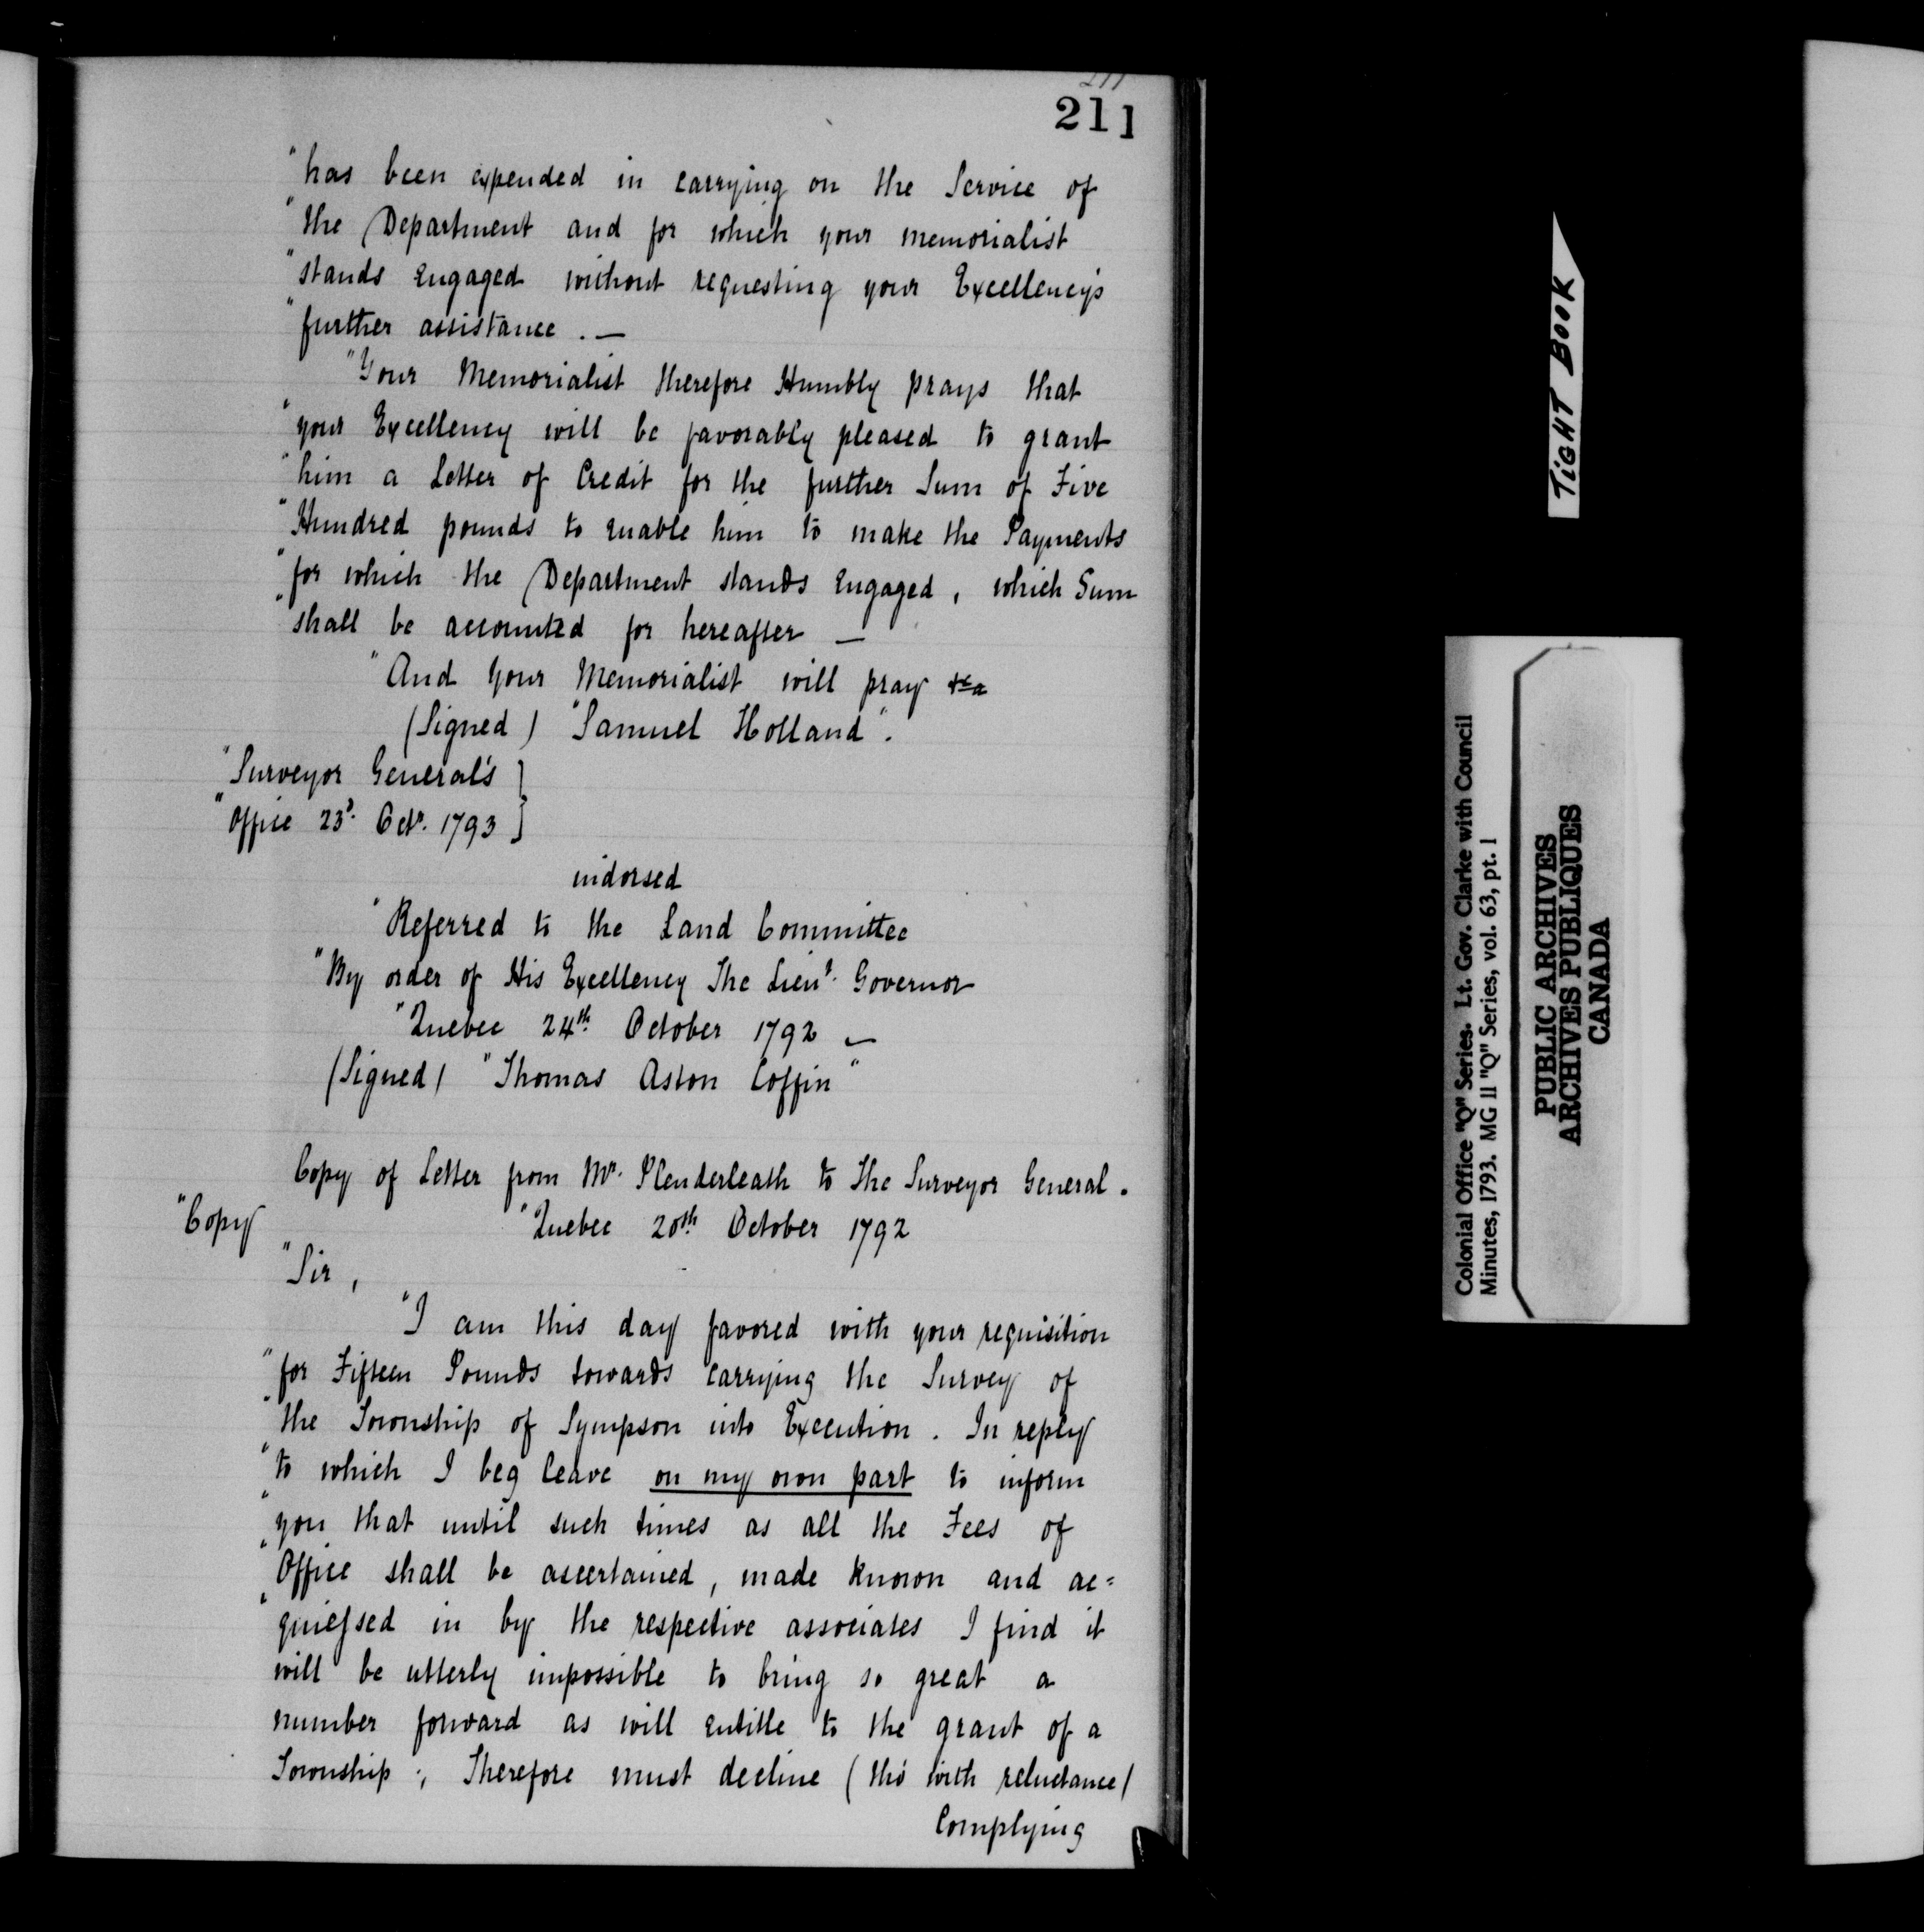 211
211
"has been expended in carrying on the Service of
"the Department and for which your memorialist
"stands engaged without requesting your Excellency's
"further assistance . —
"Your Memorialist therefore Humbly prays that
"your Excellency will be favorably pleased to grant
"him a Letter of Credit for the further Sum of Five
"Hundred pounds to enable him to make the Payments
"for which the Department stands engaged , which Sum
"shall be accounted for hereafter —
"And your Memorialist will pray &ca
(Signed) "Samuel Holland".
"Surveyor General's }
"Office 23d. Octr. 1793 }
indorsed
"Referred to the Land Committee
"By order of His Excellency The Lieut. Governor
"Quebec 24th. October 1792 —
(Signed) "Thomas Aston Coffin"
Copy of Letter from Mr. Plenderleath to The Surveyor General .
"Copy
"Quebec 20th. October 1792
"Sir ,
"I am this day favored with your requisition
"for Fifteen Pounds towards carrying the Survey of
"the Township of Sympson into Execution . In reply
"to which I beg leave on my own part to inform
"you that until such times as all the Fees of
"Office shall be ascertained , made known and ac=
"quiessed in by the respective associates I find it
will be utterly impossible to bring so great a
number forward as will entitle to the grant of a
Township ; Therefore must decline (tho' with reluctance)
Complying
TIGHT BOOK
Colonial Office "Q" Series. Lt. Gov. Clarke with Council
Minutes, 1793. MG 11 "Q" Series, vol. 63, pt. 1
PUBLIC ARCHIVES
ARCHIVES PUBLIQUES
CANADA